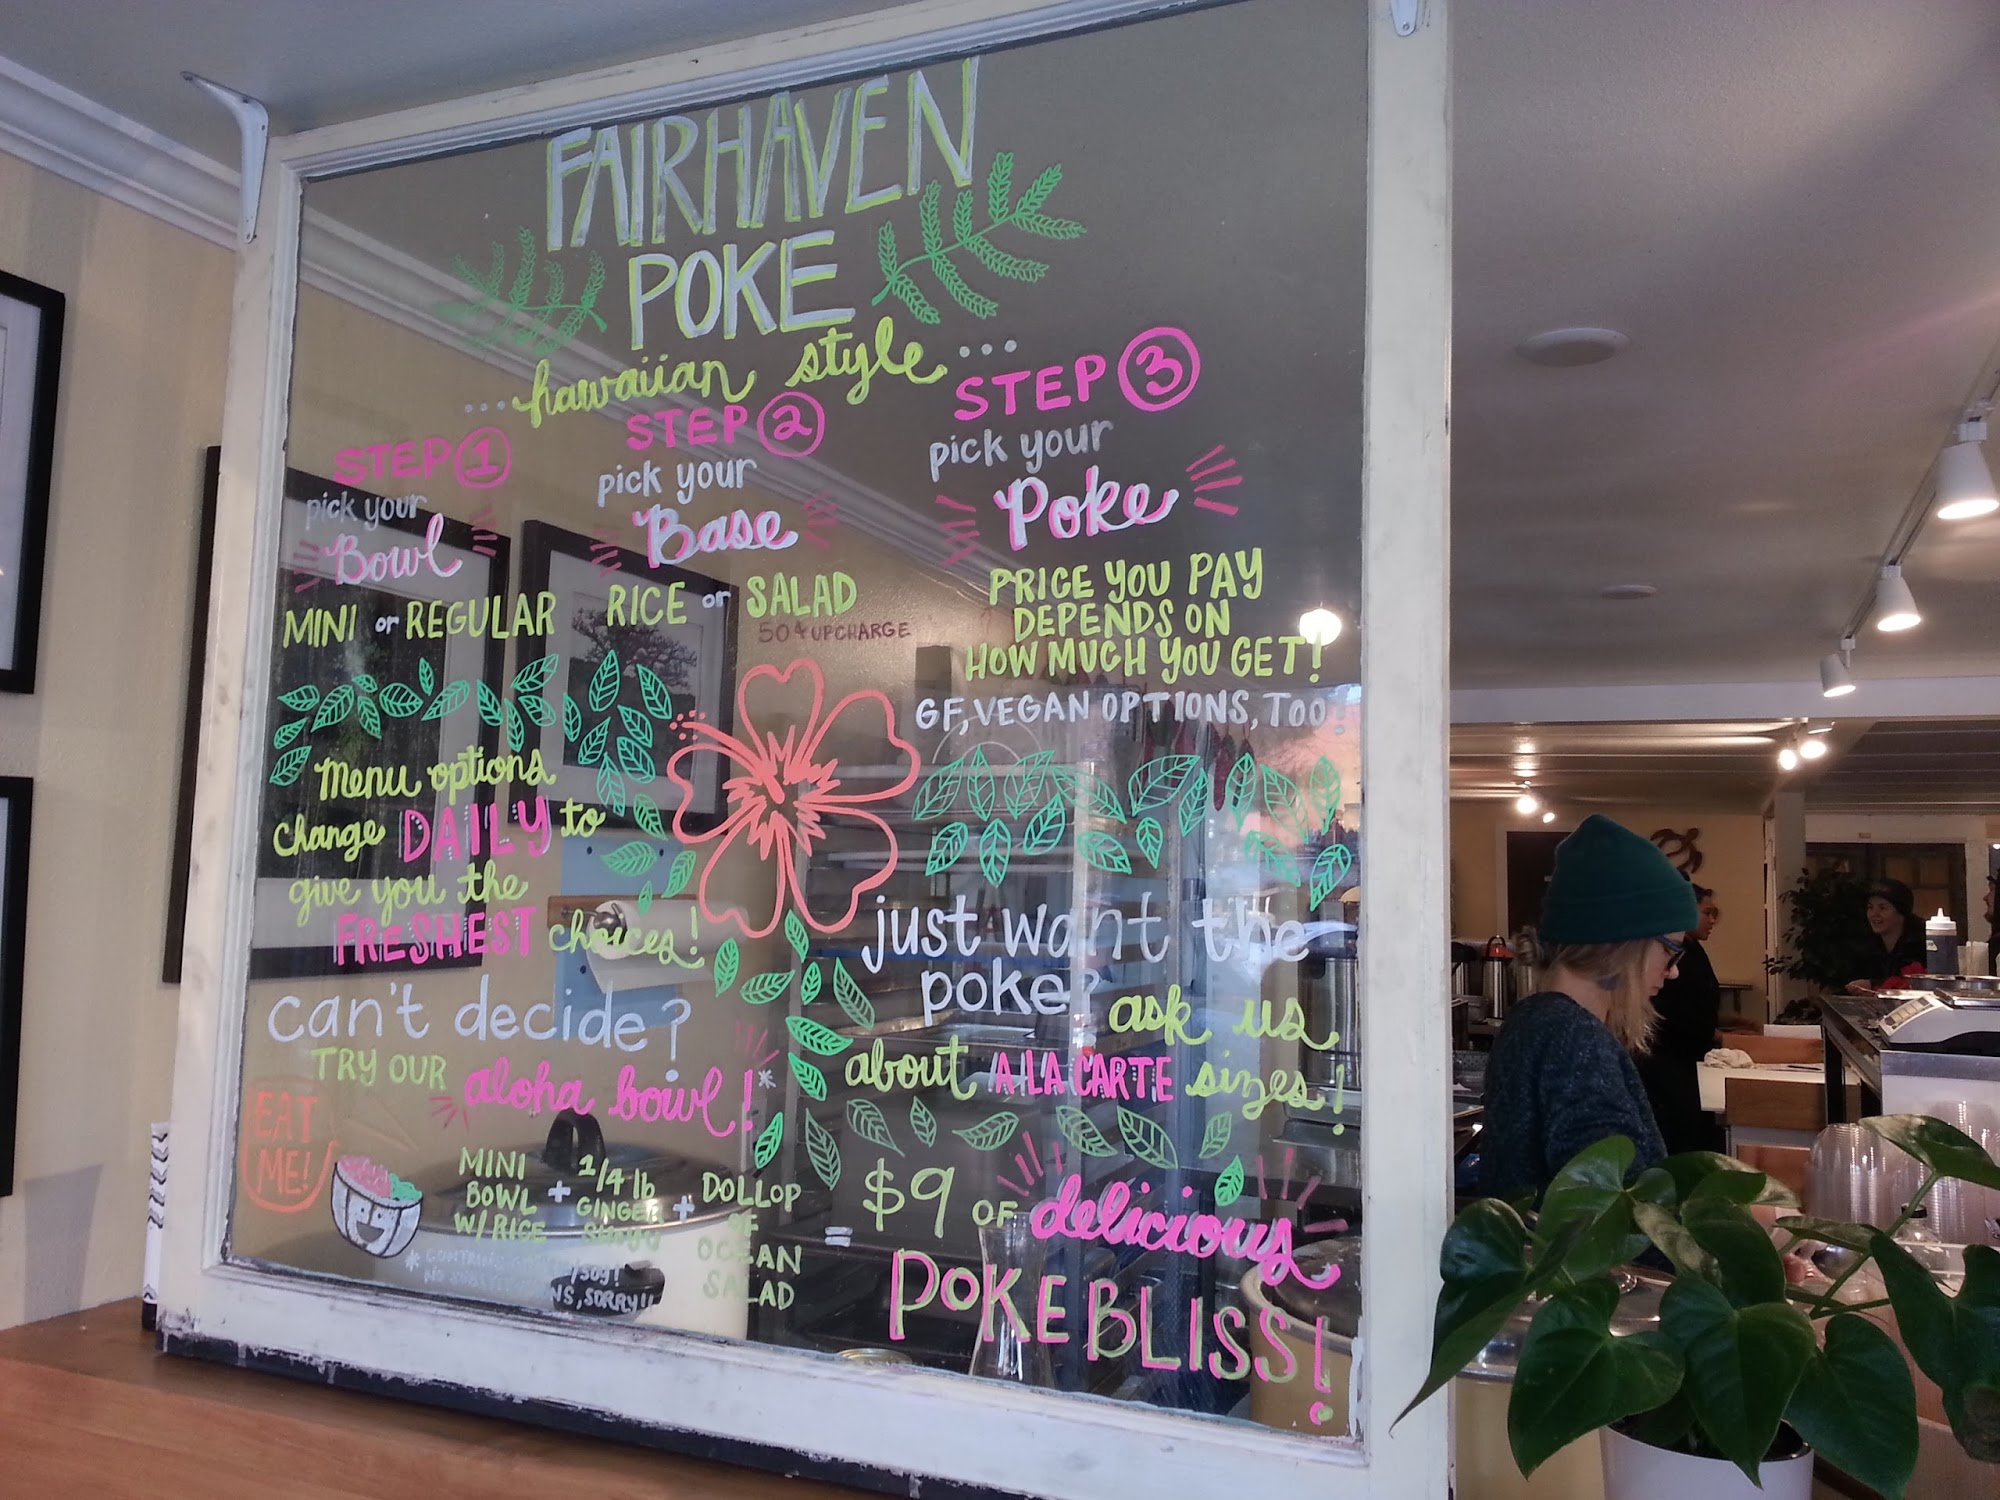 FAIRHAVEN
POKE
...hawaiian style...
STEP 1
pick your
Bowl
MINI or REGULAR
STEP 2
pick your
Base
RICE or SALAD
50¢ UPCHARGE
STEP 3
pick your
Poke
PRICE YOU PAY
DEPENDS ON
HOW MUCH YOU GET!
GF, VEGAN OPTIONS, TOO!
menu options
change DAILY to
give you the
FRESHEST choices!
can't decide?
TRY OUR aloha bowl!*
just want the
poke? ask us
about A LA CARTE sizes!
EAT
ME!
MINI
BOWL
W/RICE
+
1/4 lb
GINGER
SHOYU
+
DOLLOP
OF
OCEAN
SALAD
=
$9 OF delicious
POKE BLISS!
* CONTAINS /SOY!
NO SUBSTITUTIONS, SORRY!!